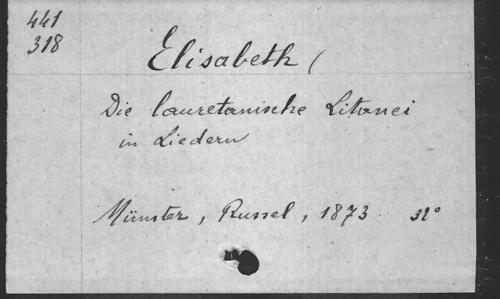 441
318
Elisabeth (
Die lauretanische Litanei
in Liedern
Münster, Russel, 1873. 32°